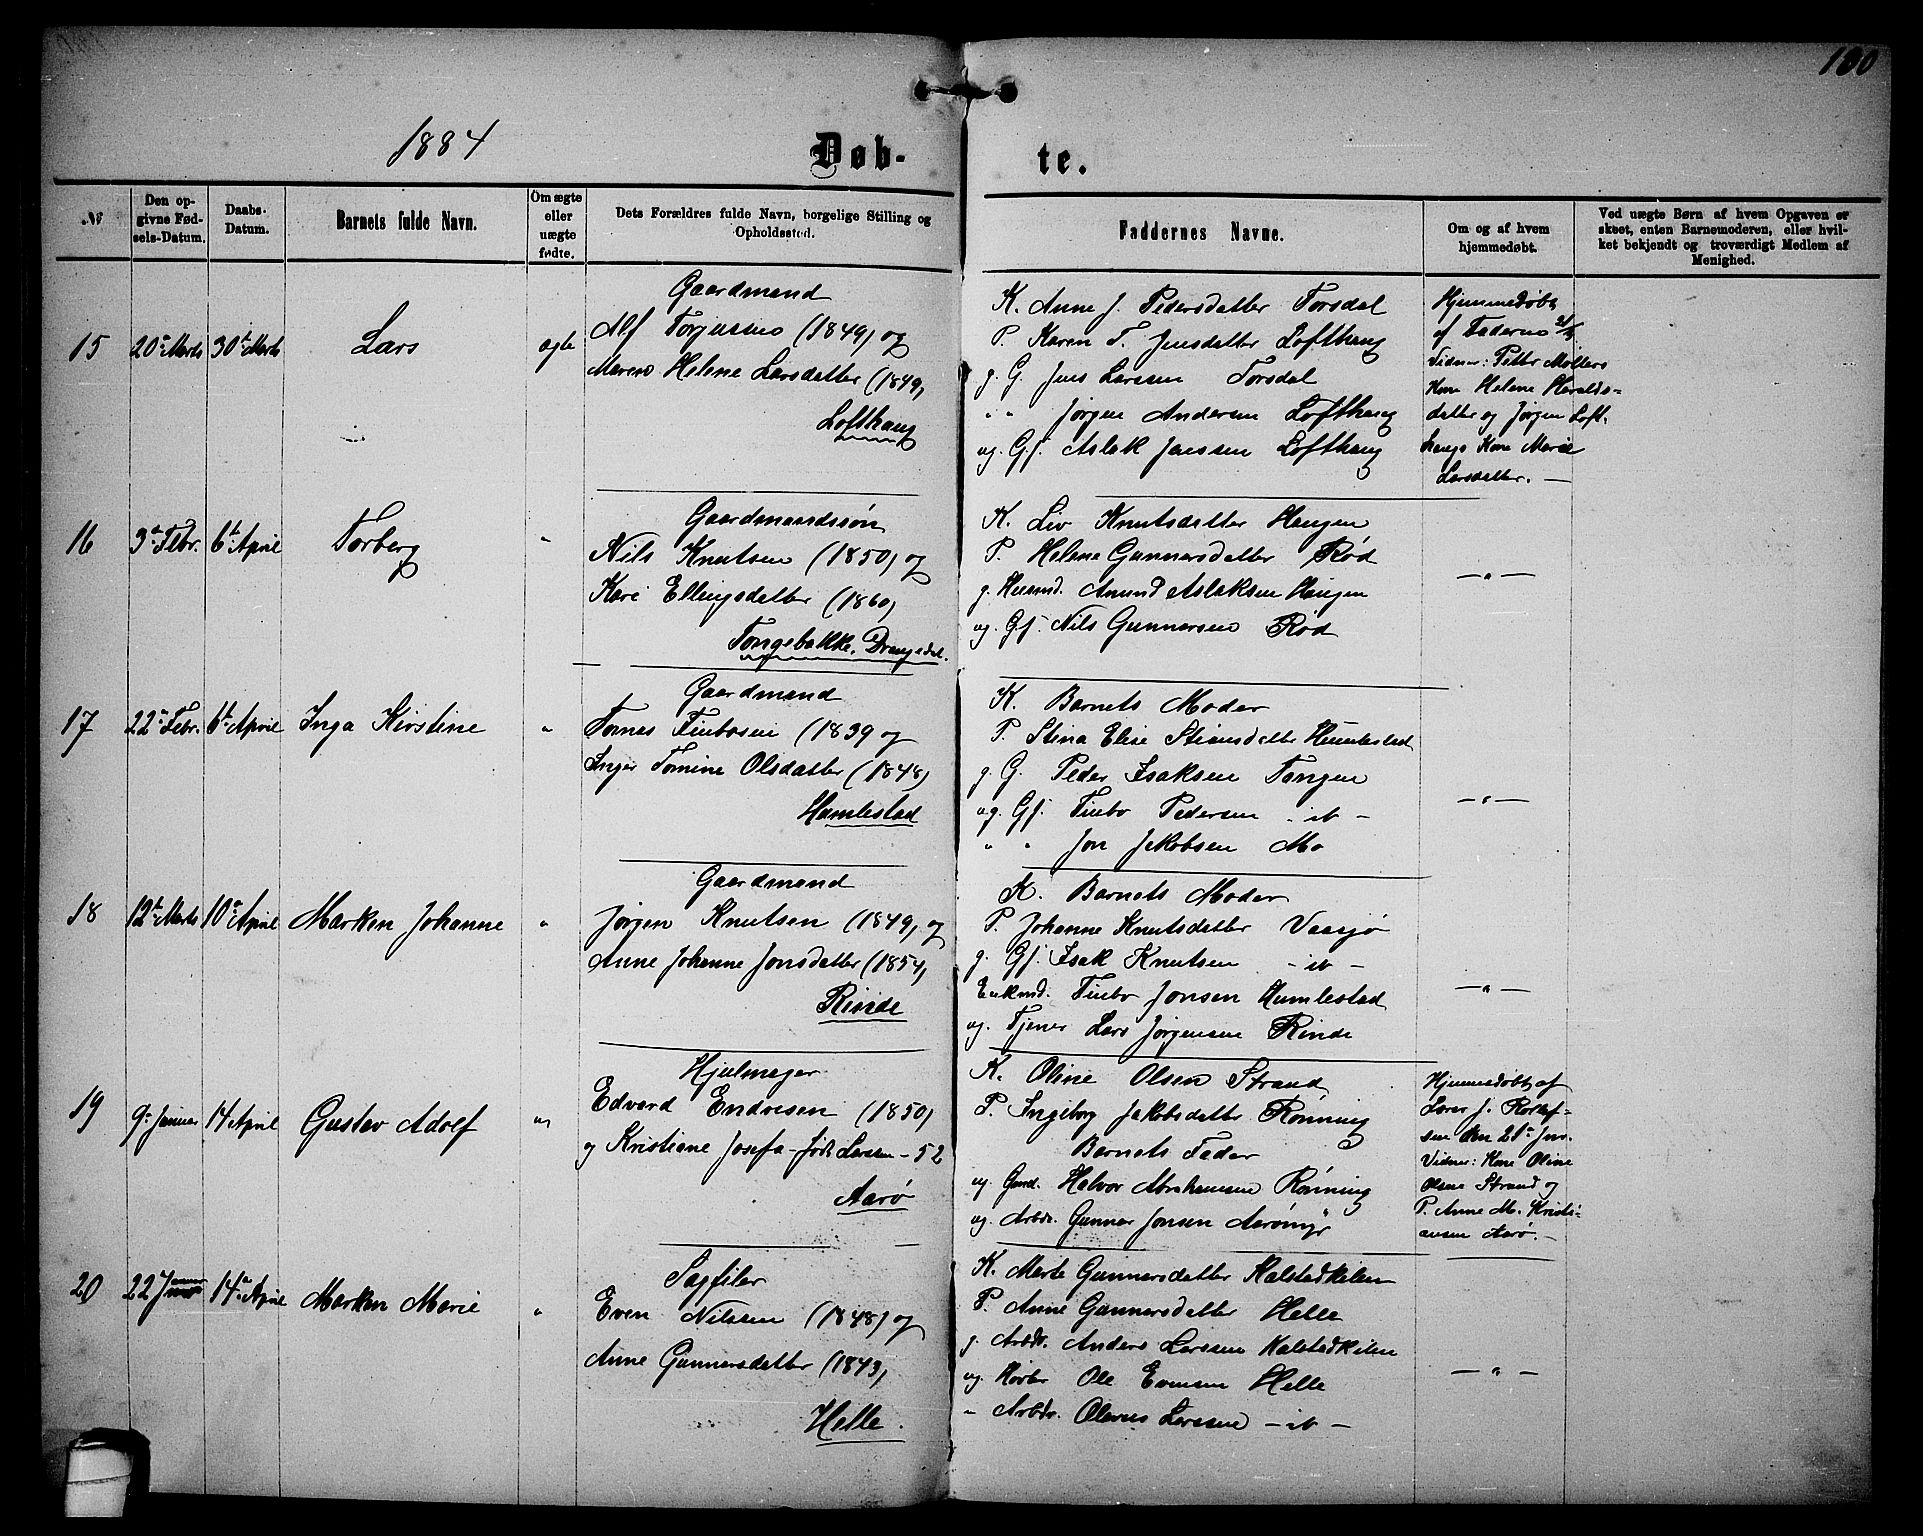 100
1884
Døb-te.
№
Den op-
givne Fød-
sels-Datum.
Daabs-
Datum.
Barnets fulde Navn.
Om ægte
eller
uægte
fødte.
Dets Forældres fulde Navn, borgelige Stilling og
Opholdssted.
Faddernes Navne.
Om og af hvem
hjemmedøbt.
Ved uægte Børn af hvem Opgaven er
skeet, enten Barnemoderen, eller hvil-
ket bekjendt og troværdigt Medlem af
Menighed.
15 20de Marts 30te Marts Lars ægte
Gaardmand
Alf Torjussen (1849) og
Maren Helene Larsdatter (1849)
Lofthaug
K. Anne J. Pedersdatter Torsdal
P. Karen T. Jensdatter Lofthaug
g. G. Jens Larssen Torsdal
" " Jørgen Andersen Lofthaug
ug. Gf. Aslak Jenssen Lofthaug
Hjemmedøbt
af Faderen
Vidner: Petter Møllers
Kone Helene Haralds-
datter og Jørgen Loft-
haugs Kone Marie
Larsdatter. —
16 3de Febr. 6te April Torberg "
Gaardmandssøn
Nils Knutsen (1850) og
Kari Ellingsdatter (1860)
Tongebakke, Drangedal.
K. Liv Knutsdatter Haugen
P. Helene Gunnersdatter Rød
g. Husmd. Amund Aslaksen Haugen
ug. Gf. Nils Gunnersen Rød
— " —
17 22de Febr. 6te April Inga Kirstine "
Gaardmand
Tomas Finbosen (1839 og
Inger Tomine Olsdatter (1848)
Humlestad
K. Barnets Moder
P. Stina Elise Stiansdatter Humlestad
g. G. Peder Isaksen Tangen
ug. Gf. Finbo Pedersen - it -
" " Jon Jakobsen Mo
— " —
18 12te Marts 10de April Marken Johanne "
Gaardmand
Jørgen Knutsen (1849) og
Anne Johanne Jonsdatter (1854)
Rinde
K. Barnets Moder
P. Johanne Knutsdatter Vaasjø
g. Gf. Isak Knutsen - it -
Enkmd. Finbo Jonsen Humlestad
ug. Tjener Lars Jørgensen Rinde
— " —
19 9de Januar 14 April Gustav Adolf "
Hjulmager
Edvard Endresen (1850)
og Kristiane Josefa - født Larsen - 52
Aarø
K. Oline Olsen Strand
P. Ingeborg Jakobsdatter Rønning
Barnets Fader
ug. Gmd. Halvor Abrahamsen Rønning
ug. Arbdr. Gunnar Jonsen Aarømyr
Hjemmedøbt af
Lærer J. Rollef-
sen den 21de Jan.
Vidner: Kone Oline
Olsen Strand og
P. Anne M. Kristi-
ansen Aarø. —
20 22 Januar 14de April Marken Marie "
Sagfiler
Even Nilssen (1848) og
Anne Gunnersdatter (1843)
Helle.
K. Marte Gunnersdatter Kalstadkilen
P. Anne Gunnersdatter Helle
g. Arbdr. Anders Larssen Kalstadkilen
ug. Ole Evensen Helle
" Arbdr. Olavus Larssen - it -
— " —